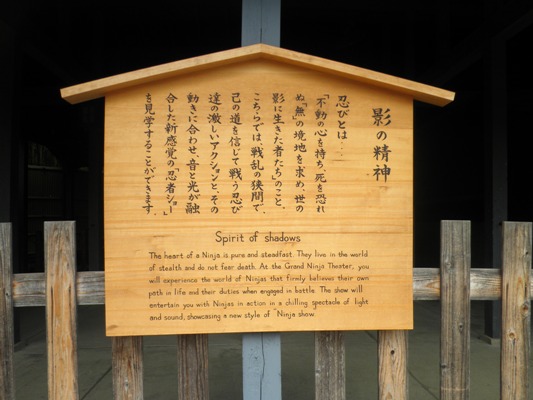 影の精神
忍びとは……
「不動の心を持ち、死を恐れ
ぬ「無」の境地を求め、世の
影に生きた者たち」のこと、
こちらでは、戦乱の狭間で、
己の道を信じて戦う忍び
達の激しいアクションと、その
動きに合わせ、音と光が融
合した新感覚の「忍者ショー」
を見学することができます。
Spirit of shadows
The heart of a Ninja is pure and steadfast. They live in the world
of stealth and do not fear death. At the Grand Ninja Theater, you
will experience the world of Ninjas that firmly believes their own
path in life and their duties when engaged in battle. The show will
entertain you with Ninjas in action in a chilling spectacle of light
and sound, showcasing a new style of "Ninja show.